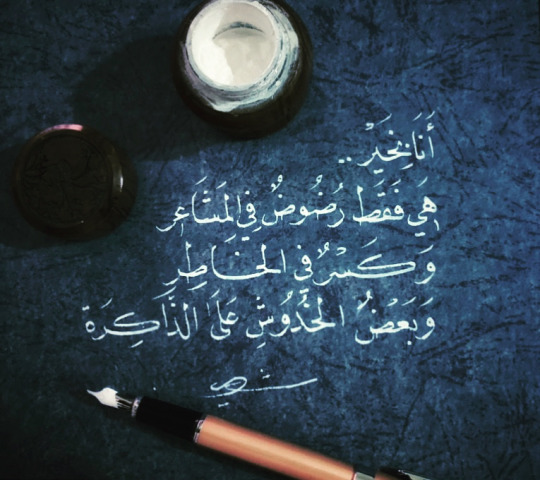 أَنَا بِخَيْر..
هِيَ فَقَط رُضُوضٌ فِي المَشَاعِرِ
وَكَسْرٌ فِي الخَاطِرِ
وَبَعْضُ الخُدُوشِ عَلَى الذَّاكِرَة